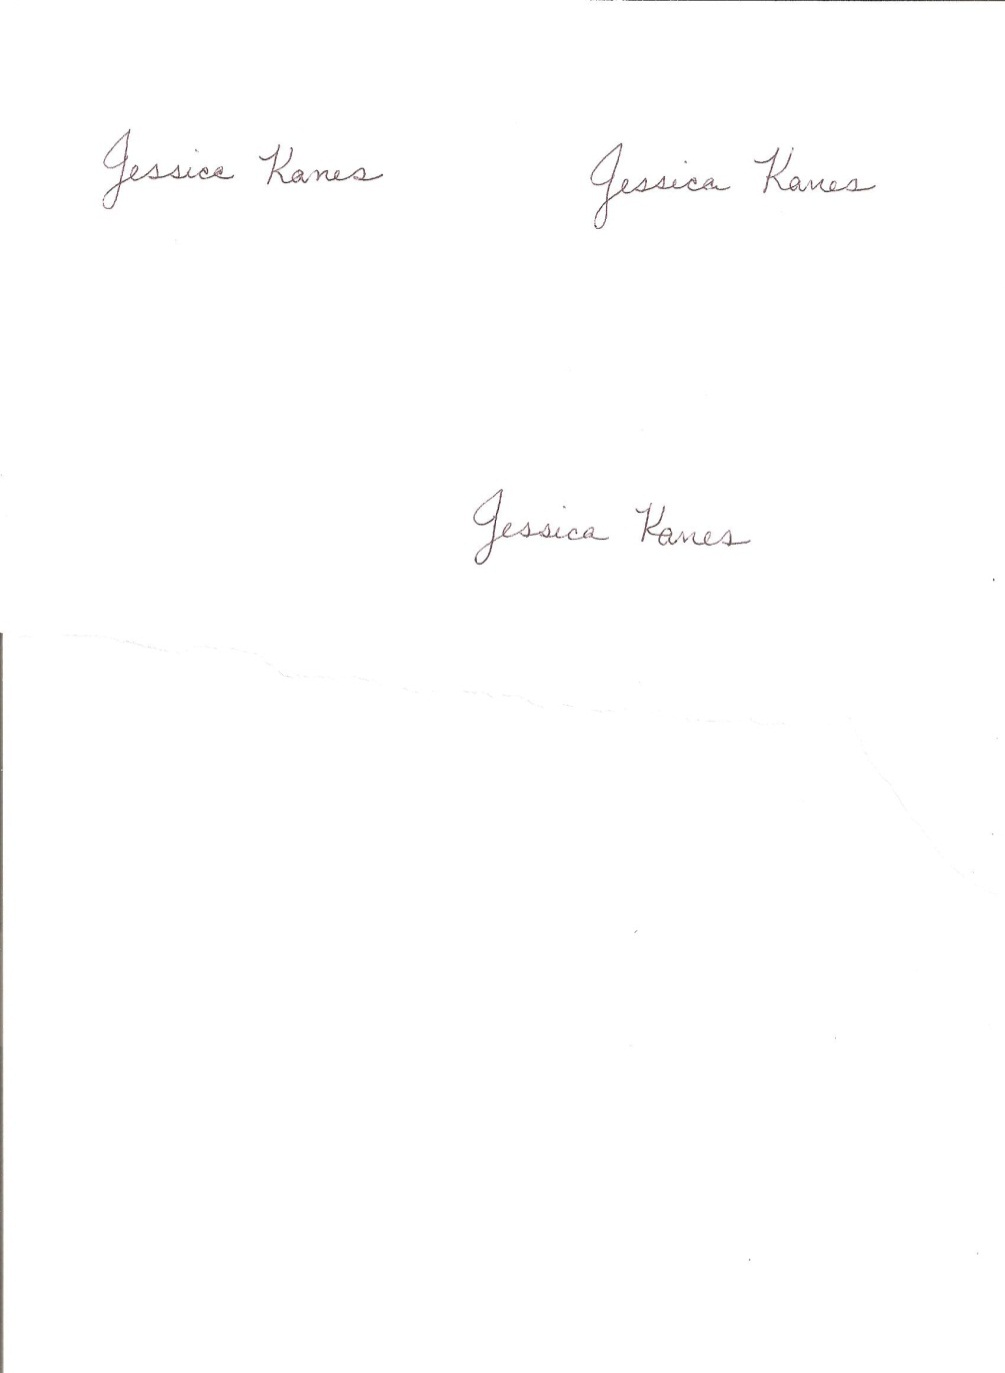 Jessica Kanes
Jessica Kanes
Jessica Kanes